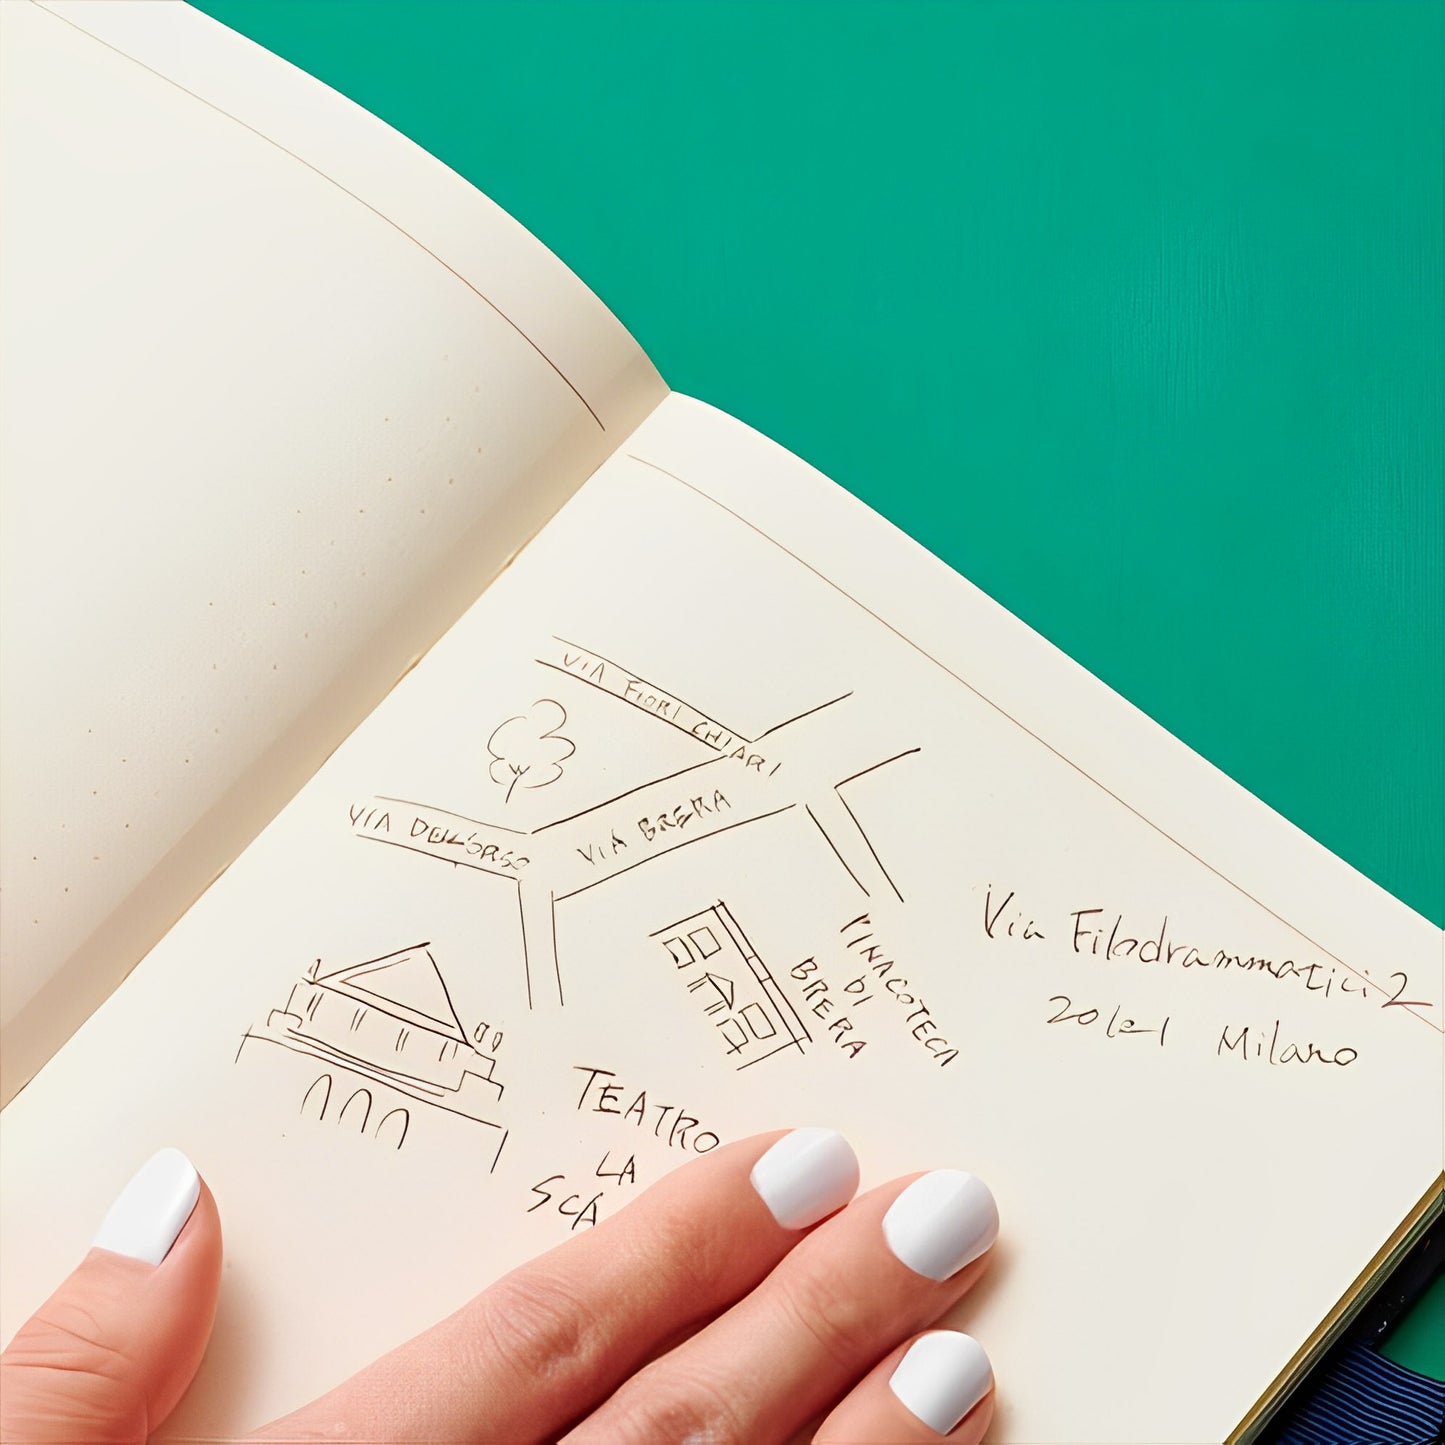 VIA FIORI CHIARI
VIA DELL'ORSO
VIA BRERA
PINACOTECA
DI
BRERA
Via Filodrammatici 2
20121 Milano
TEATRO
LA
SCA